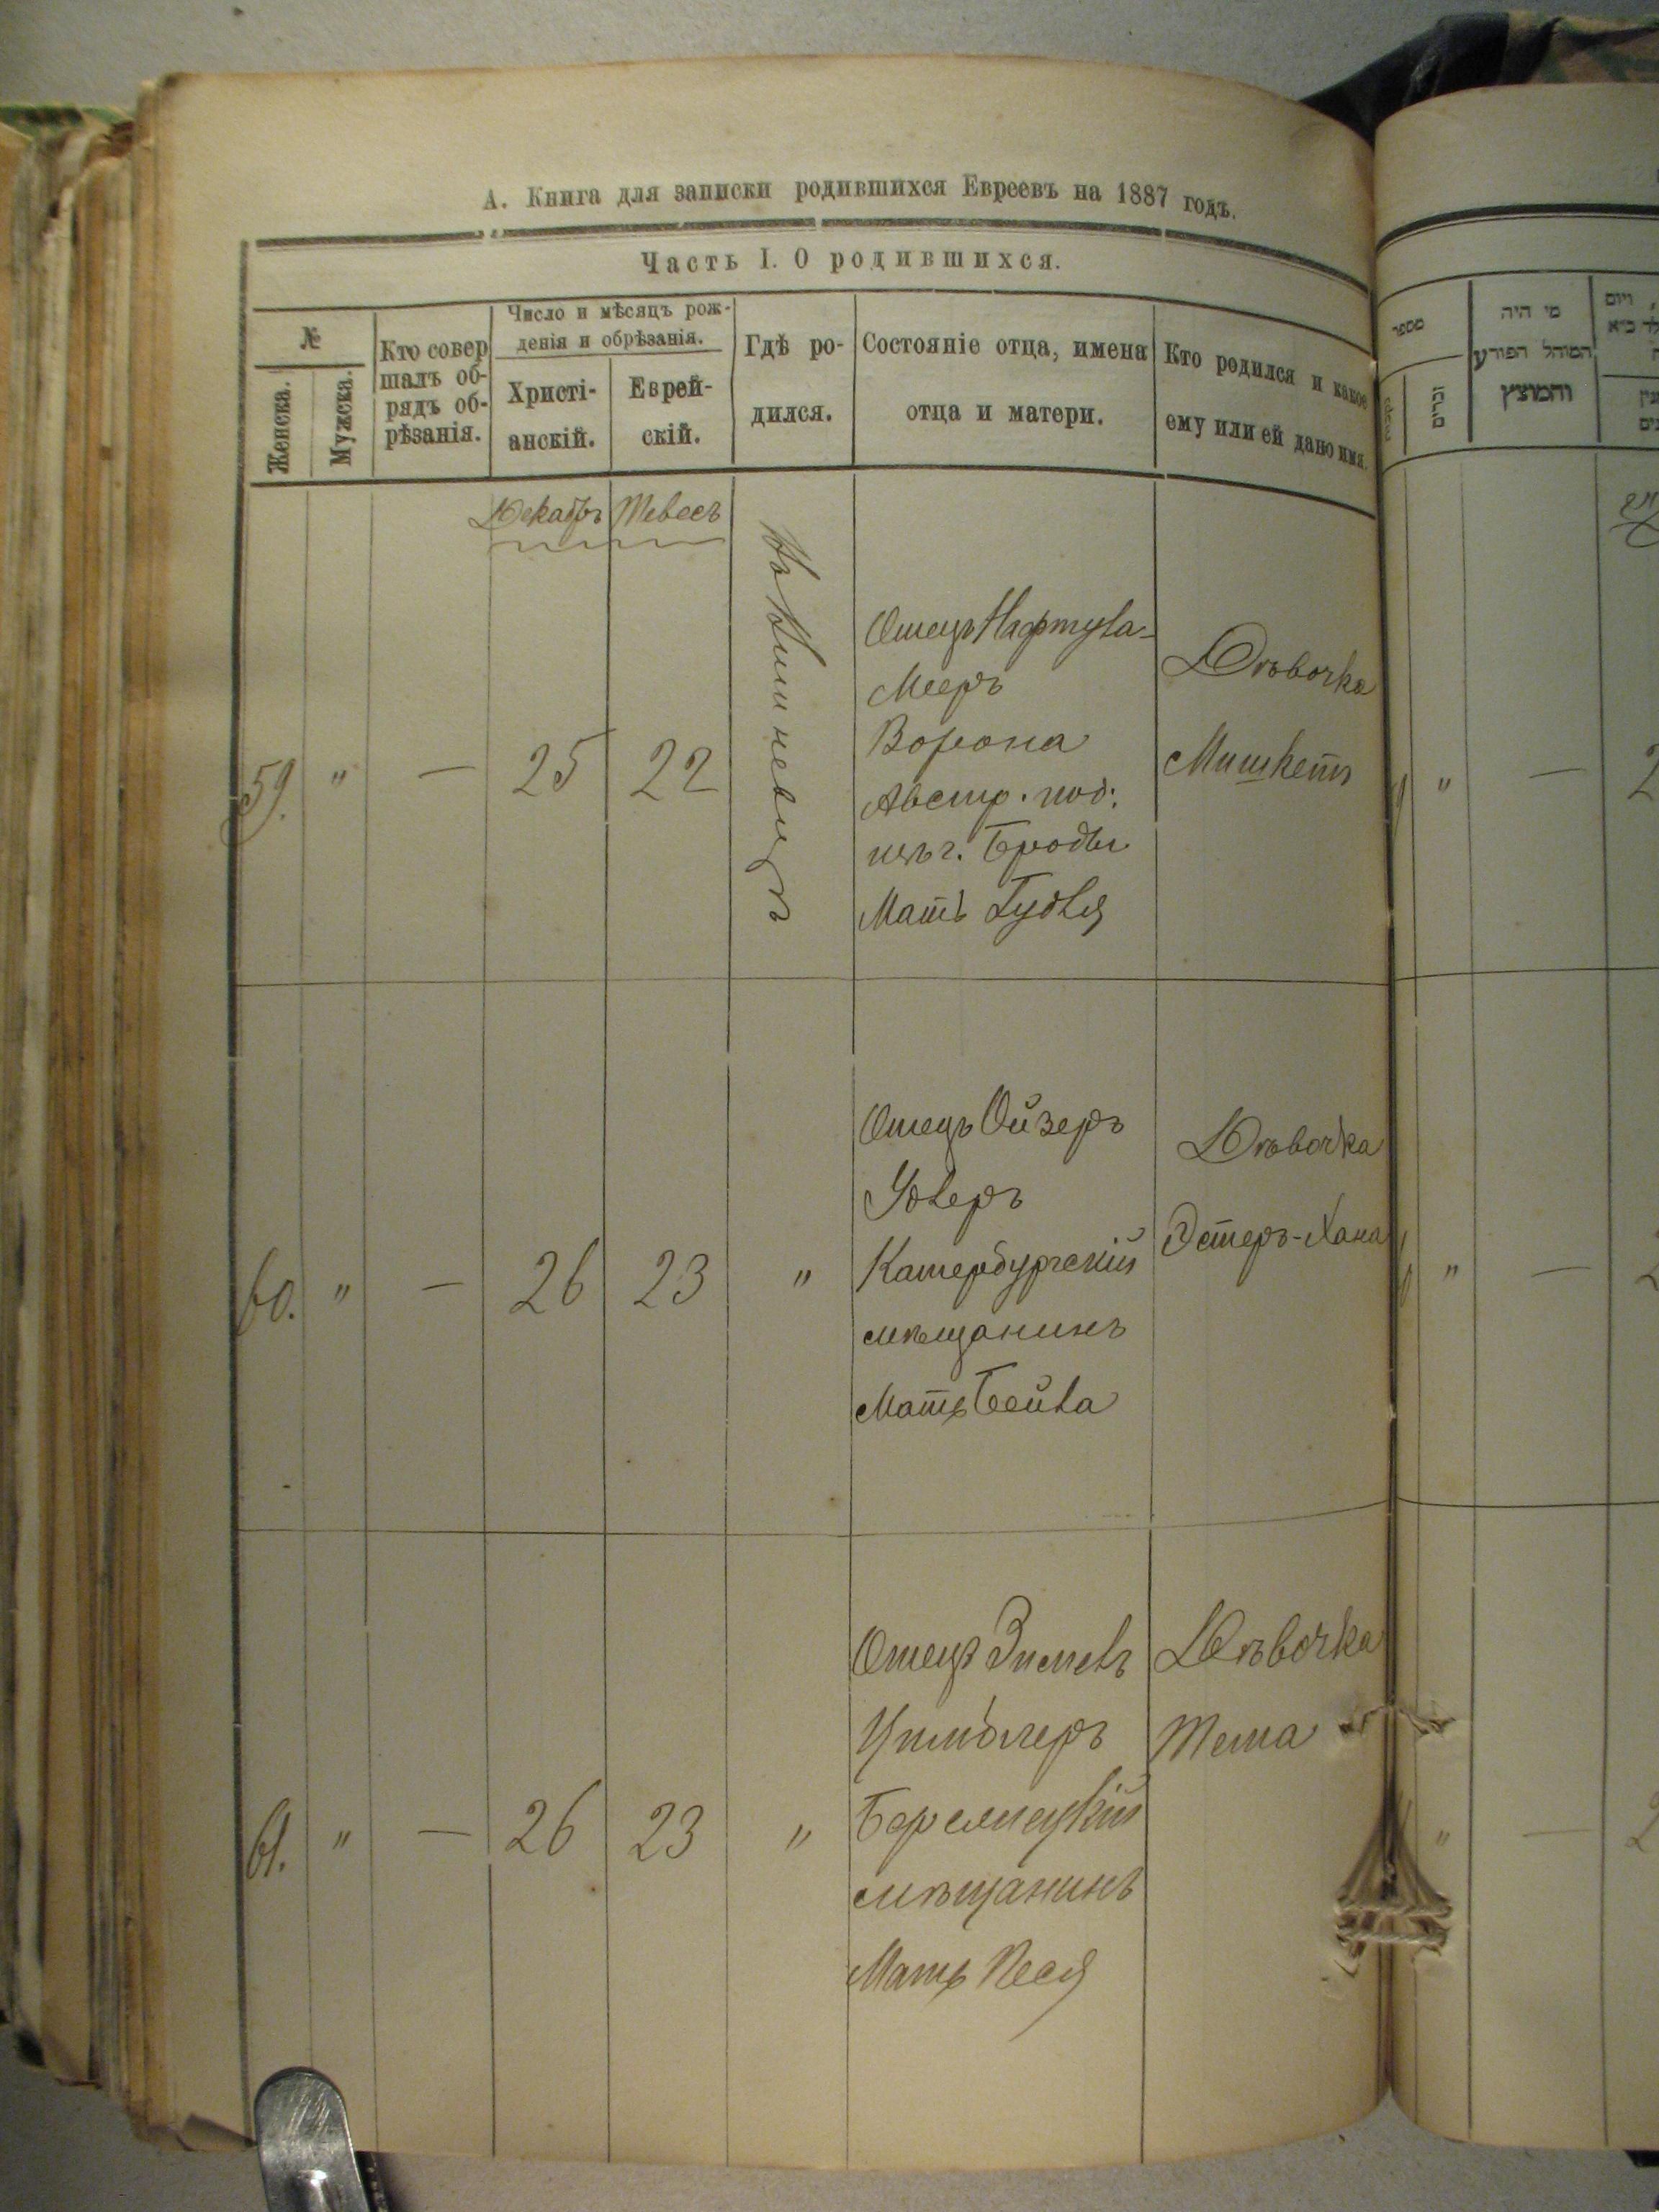 А. Книга для записки родившихся Евреевъ на 1887 годъ.
Часть I. О родившихся.
№
Женска.
Мужска.
Кто совер
шалъ об-
рядъ об-
рѣзанія.
Число и мѣсяцъ рож-
денія и обрѣзанія.
Христі-
анскій.
Еврей-
скій.
Гдѣ ро-
дился.
Состояніе отца, имена
отца и матери.
Кто родился и какое
ему или ей дано имя.
Декабрь Тевесъ
59. " — 25 22
Въ Вишневцѣ
Отецъ Нафтула-
Мееръ
Ворона
Австр. под.
изъ г. Броды
Мать Гудля
Дѣвочка
60. " — 26 23 "
Отецъ Ойзеръ
Катербургскій
мѣщанинъ
Мать Бейла
Дѣвочка
Эстеръ-Хана
61. " — 26 23 "
Отецъ
Цимблеръ
Беремецкій
мѣщанинъ
Мать Песя
Дѣвочка
Тема
מספר
זכרים
מי היה
המוהל הפורע
והמוצץ
" —
" —
" —